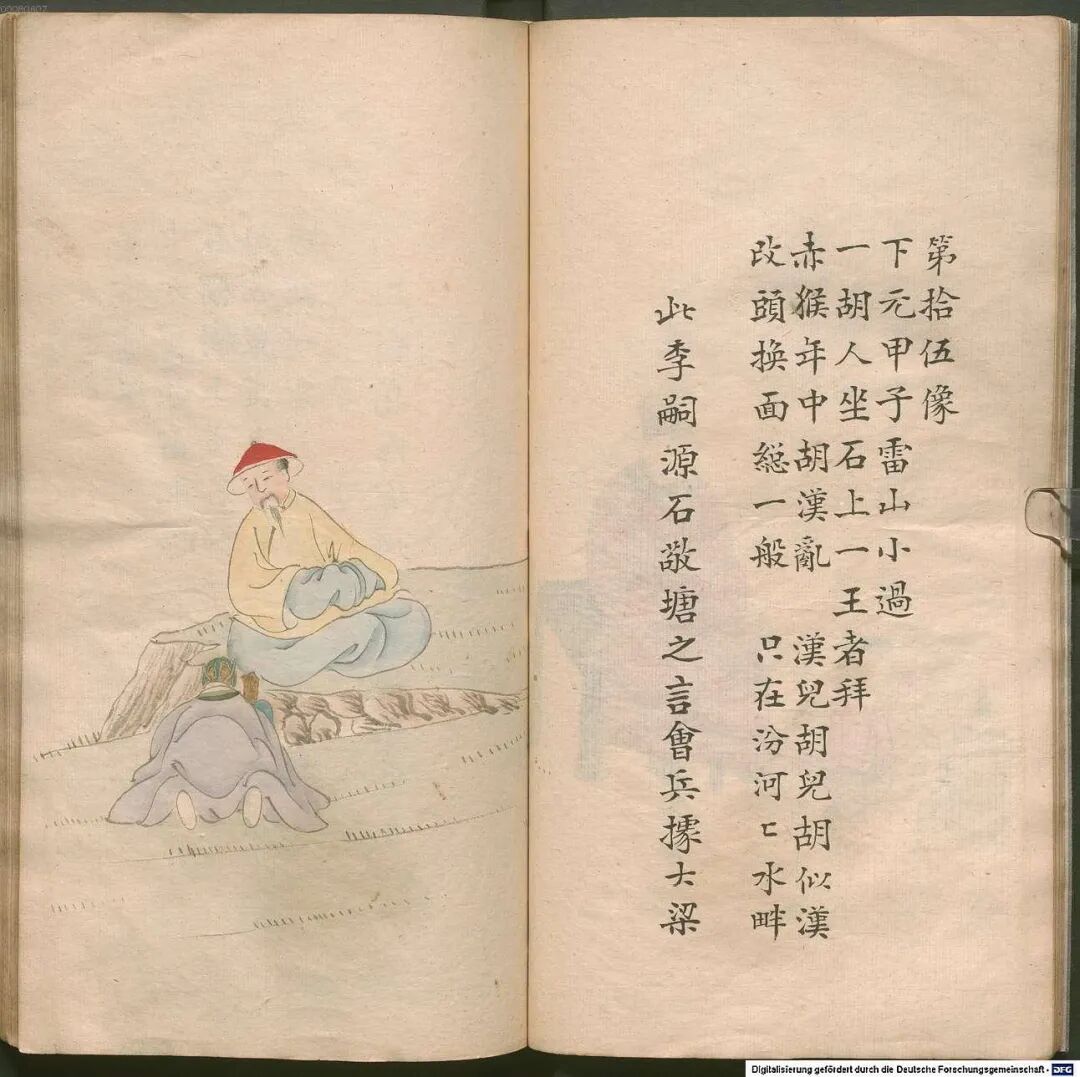 第拾伍像
下元甲子雷山小過
一胡人坐石上一王者拜
赤猴年中胡漢亂 漢兒胡兒胡似漢
改頭換面緫一般 只在汾河ㄷ水畔
此李嗣源石敬塘之言會兵據大梁
00080407
Digitalisierung gefördert durch die Deutsche Forschungsgemeinschaft - DFG